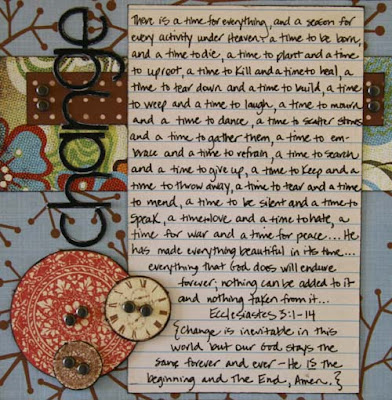 change
There is a time for everything, and a season for
every activity under Heaven, a time to be born,
and a time to die, a time to plant and a time
to uproot, a time to kill and a time to heal, a
time to tear down and a time to build, a time
to weep and a time to laugh, a time to mourn
and a time to dance, a time to scatter stones
and a time to gather them, a time to em-
brace and a time to refrain, a time to search
and a time to give up, a time to keep and a
time to throw away, a time to tear and a time
to mend, a time to be silent and a time to
speak, a time to love and a time to hate, a
time for war and a time for peace.... He
has made everything beautiful in its time...
everything that God does will endure
forever; nothing can be added to it
and nothing taken from it...
Ecclesiastes 3:1-14
{change is inevitable in this
world but our God stays the
same forever and ever - He IS the
beginning and The End, Amen.}